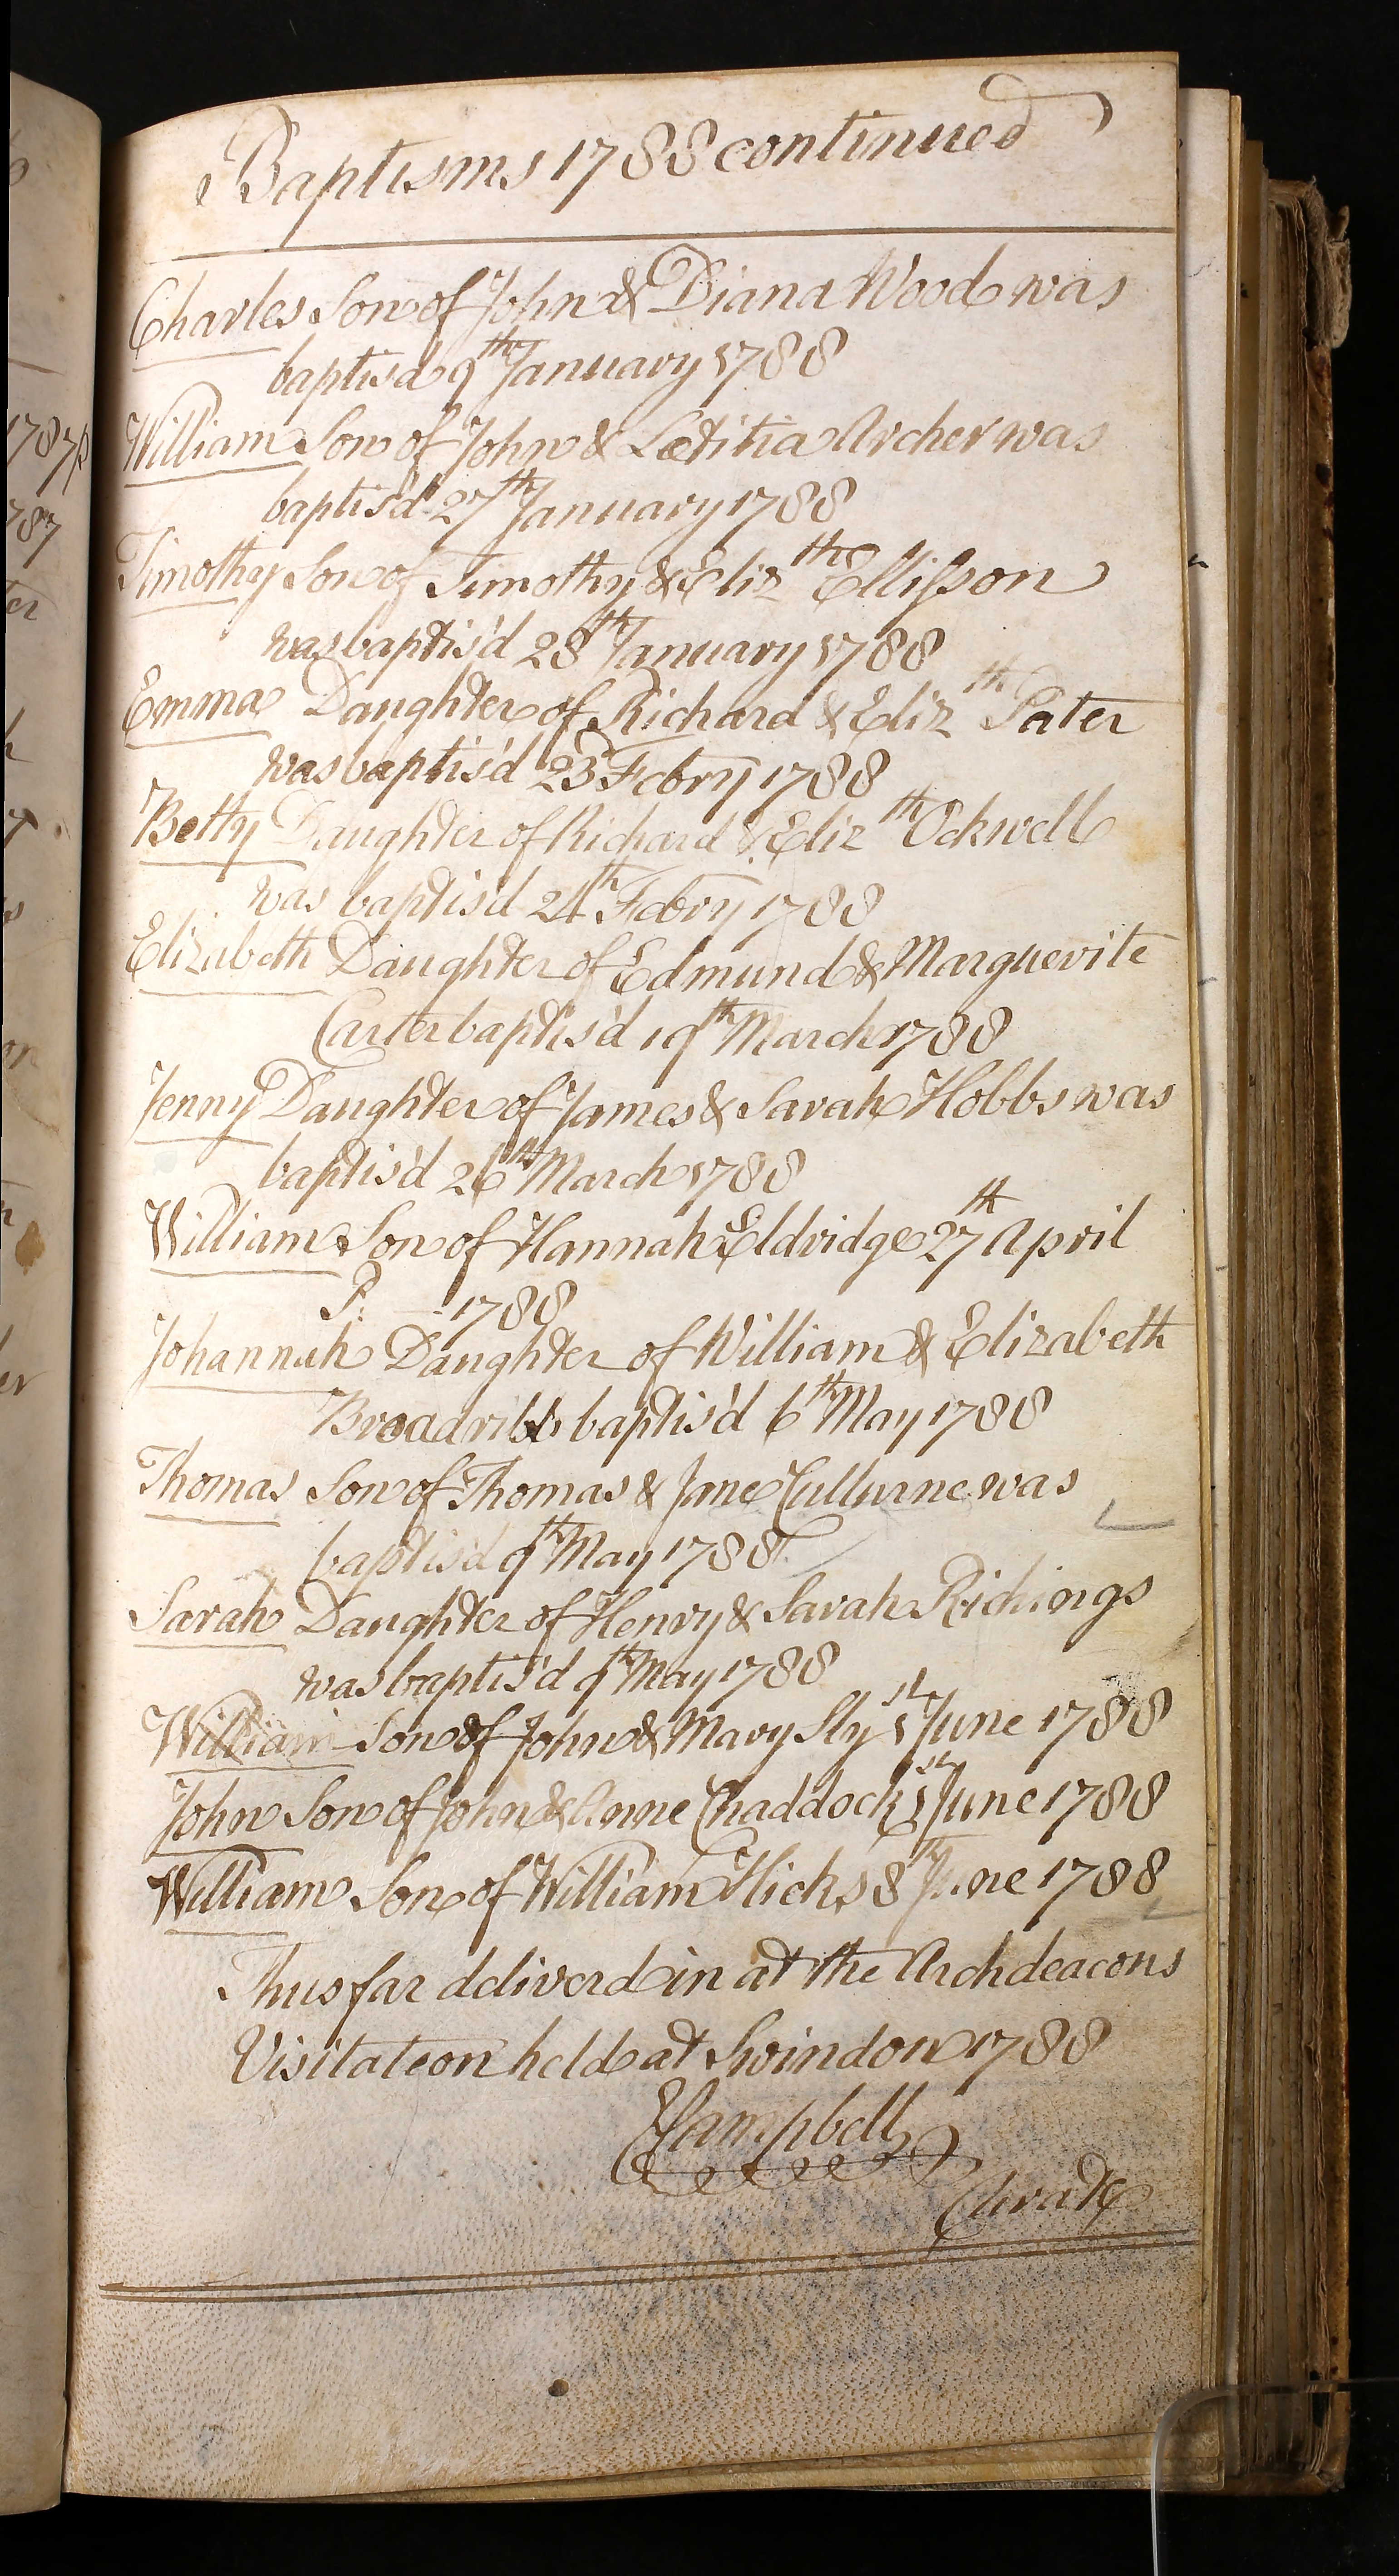 Baptisms 1788 continued
Charles Son of John & Diana Wood was
baptis'd 9th January 1788
William Son of John & Lætitia Archer was
baptis'd 27th January 1788
Timothy Son of Timothy & Elizth Ellisson
was baptis'd 28th January 1788
Emma Daughter of Richard & Elizth Pater
was baptis'd 23d Febry 1788
Betty Daughter of Richard & Elizth Ockwell
was baptis'd 24th Febry 1788
Elizabeth Daughter of Edmund & Marguerite
Carter baptis'd 19th March 1788
Jenny Daughter of James & Sarah Hobbs was
baptis'd 26th March 1788
William Son of Hannah Eldridge 27th April
P: 1788
Johannah Daughter of William & Elizabeth
Broadribb baptis'd 6th May 1788
Thomas Son of Thomas & Jane Cullurne was
baptis'd 9th May 1788
Sarah Daughter of Henry & Sarah Richings
was baptis'd 9th May 1788
William Son of John & Mary Sly 1st June 1788
John Son of John & Anne Chaddock 1st June 1788
William Son of William Hicks 8th June 1788
Thus far deliverd in at the Archdeacons
Visitation held at Swindon 1788
Campbell
Curate